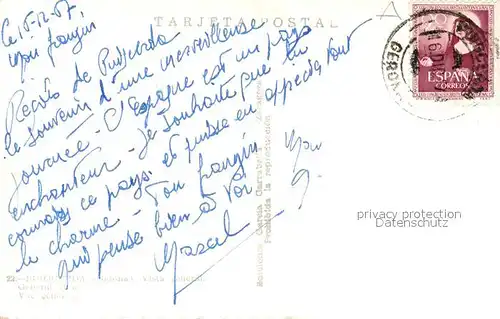 TARJETA POSTAL
Ce 15-12-57
mon frangin
Reçois de Puigcerda
le souvenir d'une merveilleuse
journée - L'Espagne est un pays
enchanteur - Je souhaite que tu
connaisses ce pays et puisse en apprécier tout
le charme - Ton frangin
qui pense bien à toi
Marcel
ESPAÑA
CORREOS
GERONA
Prohibida la reproducción
Vista general
privacy protection
watermark